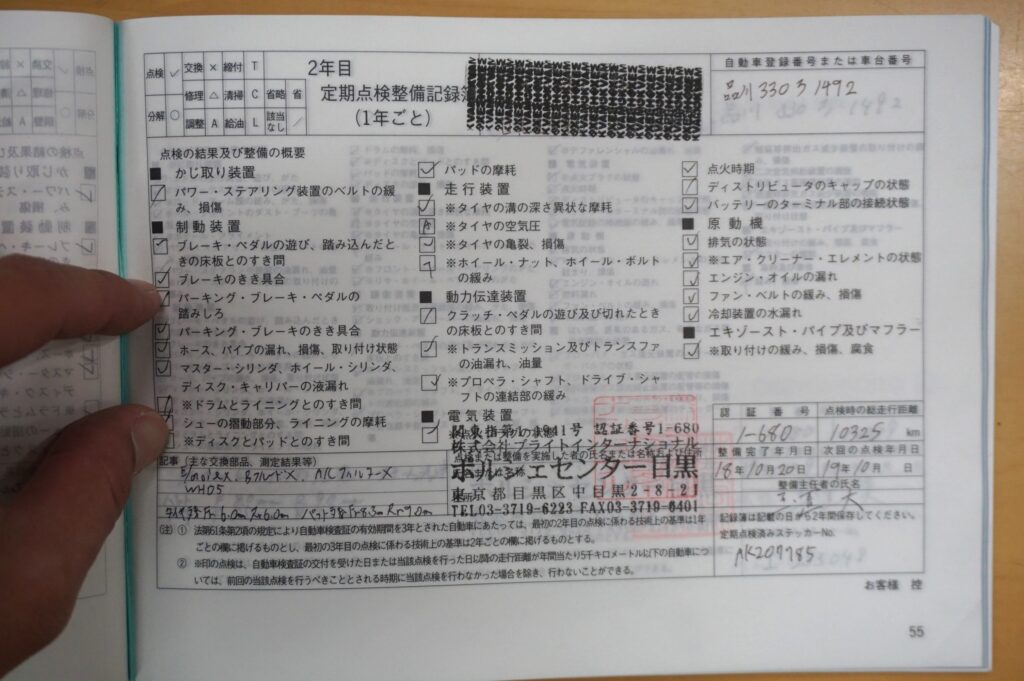 点検 ✓ 交換 × 締付 T
修理 △ 清掃 C 省略 省
分解 ○ 調整 A 給油 L 該当なし ／
2年目
定期点検整備記録簿
(1年ごと)
自動車登録番号または車台番号
品川 330 ろ 1492
点検の結果及び整備の概要
■ かじ取り装置
パワー・ステアリング装置のベルトの緩
み、損傷
■ 制動装置
ブレーキ・ペダルの遊び、踏み込んだと
きの床板とのすき間
ブレーキのきき具合
パーキング・ブレーキ・ペダルの
踏みしろ
パーキング・ブレーキのきき具合
ホース、パイプの漏れ、損傷、取り付け状態
マスター・シリンダ、ホイール・シリンダ、
ディスク・キャリパーの液漏れ
※ドラムとライニングとのすき間
シューの摺動部分、ライニングの摩耗
※ディスクとパッドとのすき間
パッドの摩耗
■ 走行装置
※タイヤの溝の深さ異状な摩耗
※タイヤの空気圧
※タイヤの亀裂、損傷
※ホイール・ナット、ホイール・ボルト
の緩み
■ 動力伝達装置
クラッチ・ペダルの遊び及び切れたとき
の床板とのすき間
※トランスミッション及びトランスファ
の油漏れ、油量
※プロペラ・シャフト、ドライブ・シャ
フトの連結部の緩み
■ 電気装置
点火時期
ディストリビュータのキャップの状態
バッテリーのターミナル部の接続状態
■ 原動機
排気の状態
※エア・クリーナー・エレメントの状態
エンジン・オイルの漏れ
ファン・ベルトの緩み、損傷
冷却装置の水漏れ
■ エキゾースト・パイプ及びマフラー
※取り付けの緩み、損傷、腐食
記事（主な交換部品、測定結果等）
関東指第1-1941号 認証番号1-680
株式会社ブライトインターナショナル
ポルシェセンター目黒
東京都目黒区中目黒2-8-21
TEL03-3719-6223 FAX03-3719-6401
認証番号 点検時の総走行距離
1-680 10325 km
整備完了年月日 次回の点検年月日
18年10月20日 19年10月 日
整備主任者の氏名
記録簿は記載の日から2年間保存してください。
定期点検済みステッカーNo.
AK207785
(注) ① 法第61条第2項の規定により自動車検査証の有効期間を3年とされた自動車にあたっては、最初の2年目の点検に係わる技術上の基準は1年
ごとの欄に掲げるものとし、最初の3年目の点検に係わる技術上の基準は2年ごとの欄に掲げるものとする。
② ※印の点検は、自動車検査証の交付を受けた日または当該点検を行った日以降の走行距離が年間当たり5千キロメートル以下の自動車につ
いては、前回の当該点検を行うべきこととされる時期に当該点検を行わなかった場合を除き、行わないことができる。
お客様 控
55